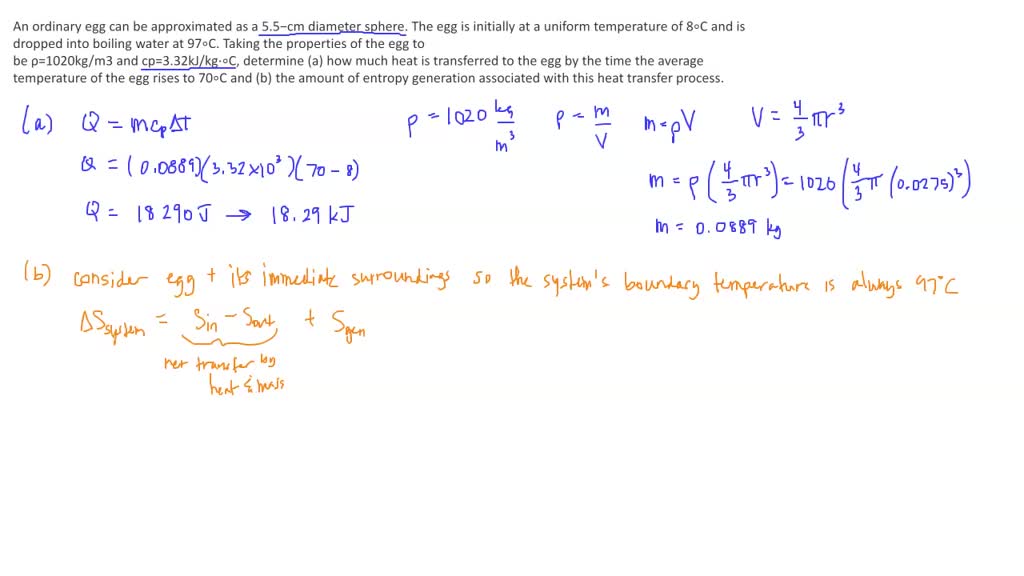 An ordinary egg can be approximated as a 5.5−cm diameter sphere. The egg is initially at a uniform temperature of 8∘C and is
dropped into boiling water at 97∘C. Taking the properties of the egg to
be ρ=1020kg/m3 and cp=3.32kJ/kg⋅∘C, determine (a) how much heat is transferred to the egg by the time the average
temperature of the egg rises to 70∘C and (b) the amount of entropy generation associated with this heat transfer process.
(a) Q = mcpΔt
ρ = 1020 kg/m³
ρ = m/V
m = ρV
V = 4/3 πr³
Q = (0.0889)(3.32×10³)(70 − 8)
m = ρ(4/3 πr³) = 1020(4/3 π(0.0275)³)
Q = 18290J → 18.29 kJ
m = 0.0889 kg
(b) consider egg + its immediate surroundings so the system's boundary temperature is always 97°C
ΔSsystem = Sin − Sout + Sgen
net transfer by
heat & mass